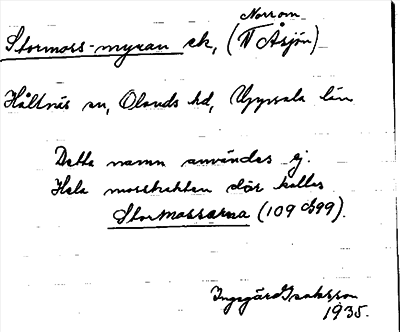 Norrom
Stormoss-myran ek, (N Åsjön)
Hållnäs sn, Olands hd, Uppsala län
Detta namn användes ej.
Hela mosstrakten där kallas
Stormossarna (109 899).
Ingegärd Isaksson
1935.